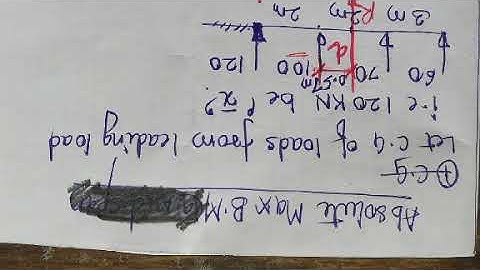 Absolute Max B.M
① C.G
Let C.G of loads from leading load
i.e 120 KN be "x̄"?
60 70 100 120
0.57m
d
3m R 2m 2m